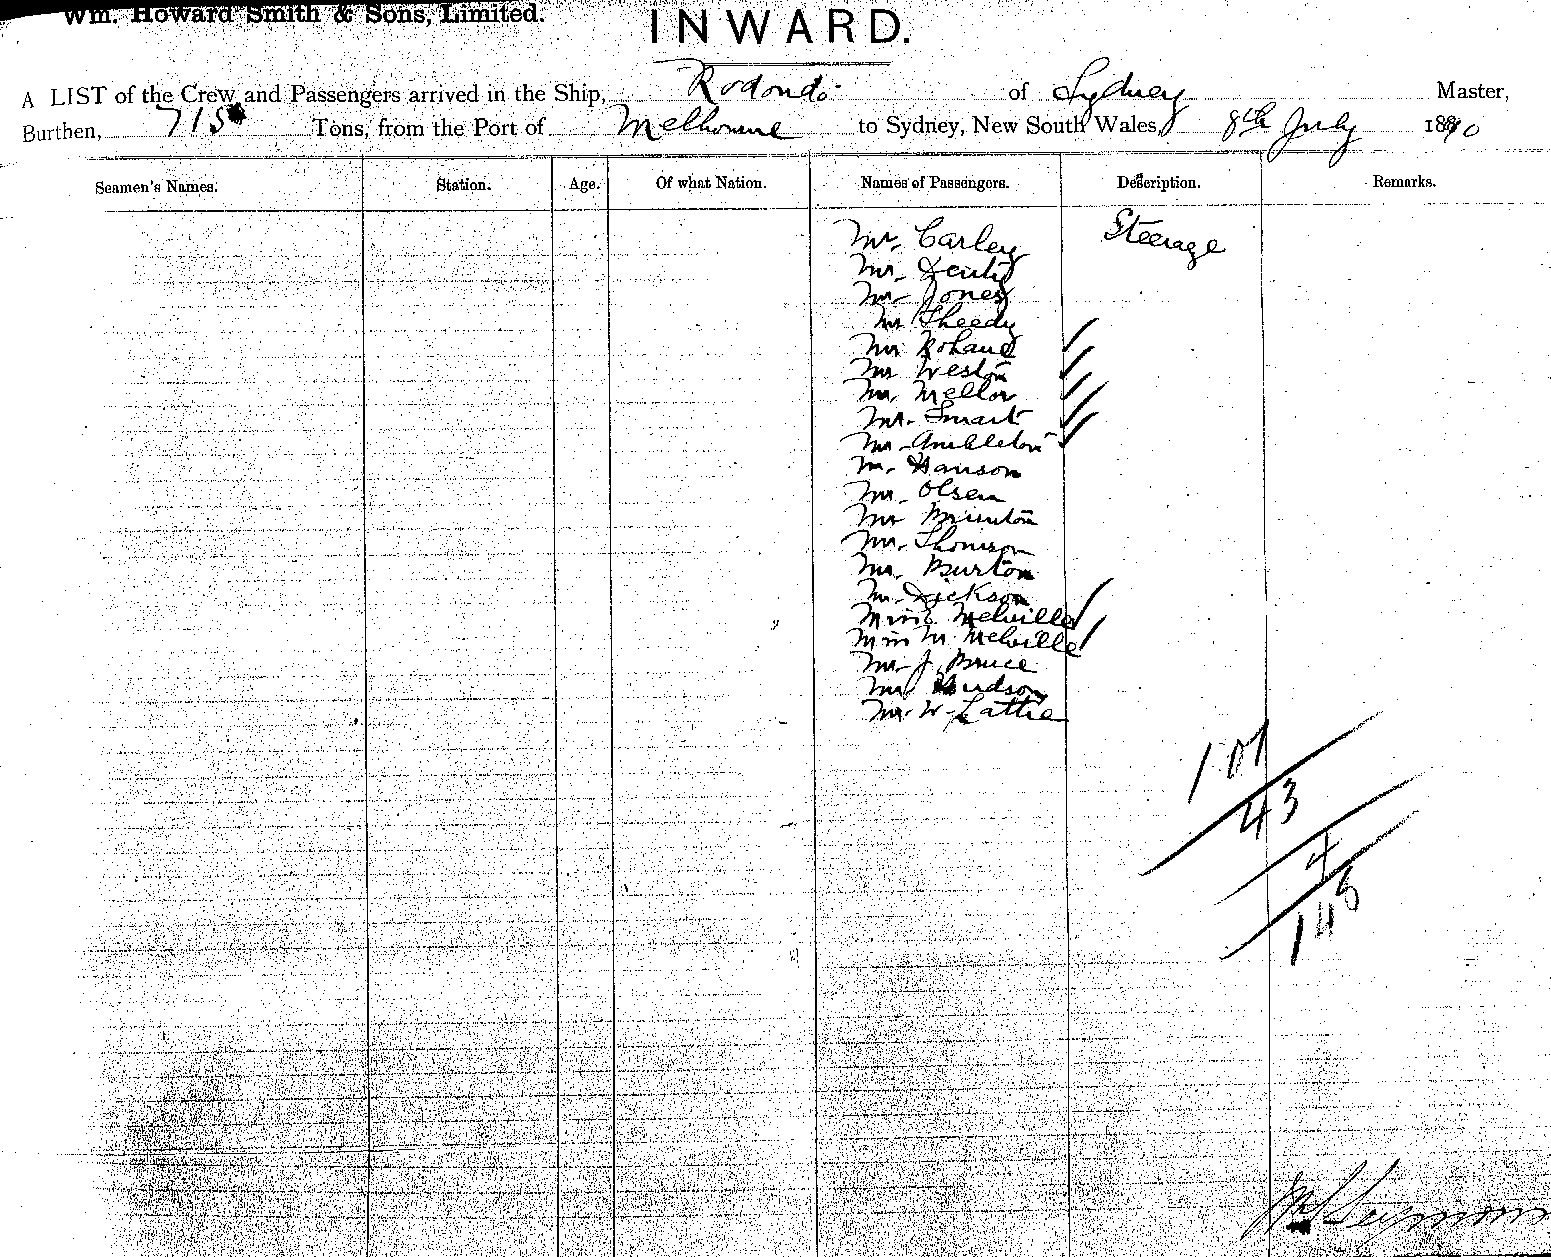 Wm. Howard Smith & Sons, Limited.
INWARD.
A LIST of the Crew and Passengers arrived in the Ship, Rodondo of Sydney Master,
Burthen, 715 Tons, from the Port of Melbourne to Sydney, New South Wales, 8th July 1890
Seamen's Names. Station. Age. Of what Nation. Names of Passengers. Description. Remarks.
Mr. Carley Steerage
Mr.
Mr. Jones
Mr Sheedy
Mr
Mr Weston
Mr. Mellor
Mr. Smart
Mr. Ambleton
Mr. Hanson
Mr. Olsen
Mr Brunton
Mr. Thomson
Mr. Burton
Mr. Dickson
Miss Melville
Miss M. Melville
Mr J. Bruce
Mr Hudson
Mr. W. Lattie
101
43
4
148